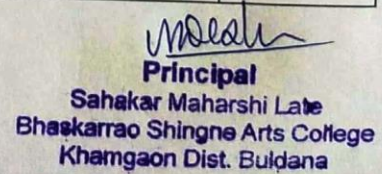 Principal
Sahakar Maharshi Late
Bhaskarrao Shingne Arts College
Khamgaon Dist. Buldana